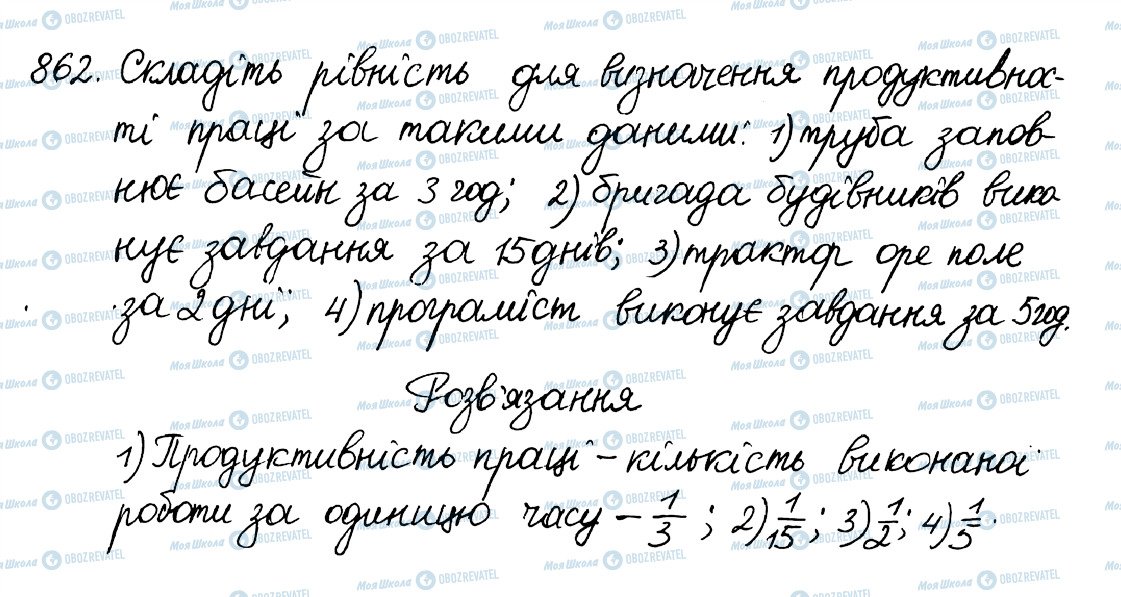 862. Складіть рівність для визначення продуктивнос-
ті праці за такими даними: 1) труба запов-
нює басейн за 3 год; 2) бригада будівників вико
нує завдання за 15 днів; 3) трактор оре поле
за 2 дні; 4) програміст виконує завдання за 5 год.
Розв'язання
1) Продуктивність праці – кількість виконаної
роботи за одиницю часу – 1/3 ; 2) 1/15 ; 3) 1/2 ; 4) 1/5 .